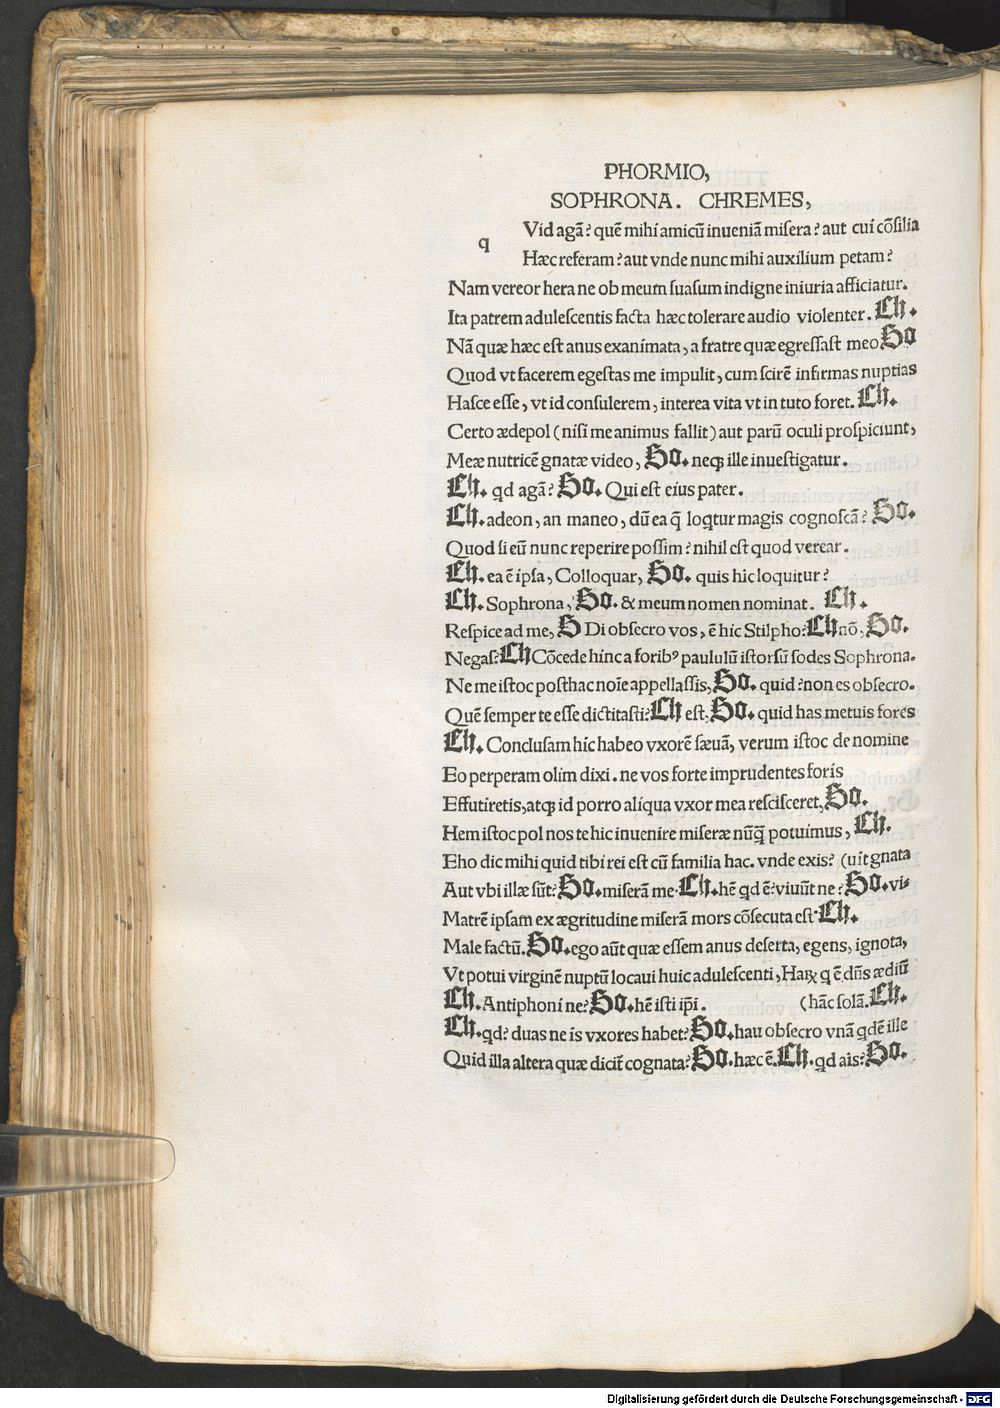 PHORMIO,
SOPHRONA. CHREMES,
q Vid agã? quẽ mihi amicũ inueniã misera? aut cui cõsilia
Hæc referam? aut vnde nunc mihi auxilium petam?
Nam vereor hera ne ob meum suasum indigne iniuria afficiatur.
Ita patrem adulescentis facta hæc tolerare audio violenter. Ch.
Nã quæ hæc est anus exanimata, a fratre quæ egressast meo So
Quod vt facerem egestas me impulit, cum scirẽ infirmas nuptias
Hasce esse, vt id consulerem, interea vita vt in tuto foret. Ch.
Certo ædepol (nisi me animus fallit) aut parũ oculi prospiciunt,
Meæ nutricẽ gnatæ video, So. neqꝫ ille inuestigatur.
Ch. qd agã? So. Qui est eius pater.
Ch. adeon, an maneo, dũ ea q̃ loqtur magis cognoscã? So.
Quod si eũ nunc reperire possim? nihil est quod verear.
Ch. ea ẽ ipsa, Colloquar, So. quis hic loquitur?
Ch. Sophrona, So. & meum nomen nominat. Ch.
Respice ad me, S Di obsecro vos, ẽ hic Stilpho? Ch nõ, So.
Negas? Ch Cõcede hinc a foribꝰ paululũ istorsũ sodes Sophrona.
Ne me istoc posthac noĩe appellassis, So. quid? non es obsecro.
Quẽ semper te esse dictitasti? Ch est, So. quid has metuis fores
Ch. Conclusam hic habeo vxorẽ sæuã, verum istoc de nomine
Eo perperam olim dixi. ne vos forte imprudentes foris
Effutiretis, atqꝫ id porro aliqua vxor mea rescisceret, So.
Hem istoc pol nos te hic inuenire miseræ nũq̃ potuimus, Ch.
Eho dic mihi quid tibi rei est cũ familia hac. vnde exis? (uit gnata
Aut vbi illæ sũt? So. miserã me. Ch. hẽ qd ẽ? viuũt ne? So. vi-
Matrẽ ipsam ex ægritudine miserã mors cõsecuta est. Ch.
Male factũ. So. ego aũt quæ essem anus deserta, egens, ignota,
Vt potui virginẽ nuptũ locaui huic adulescenti, Haꝝ q ẽ dñs ædiũ
Ch. Antiphoni ne? So. hẽ isti ip̃i. (hãc solã. Ch.
Ch. qd? duas ne is vxores habet? So. hau obsecro vnã qdẽ ille
Quid illa altera quæ dicit̃ cognata? So. hæc ẽ. Ch. qd ais? So.
Digitalisierung gefördert durch die Deutsche Forschungsgemeinschaft - DFG